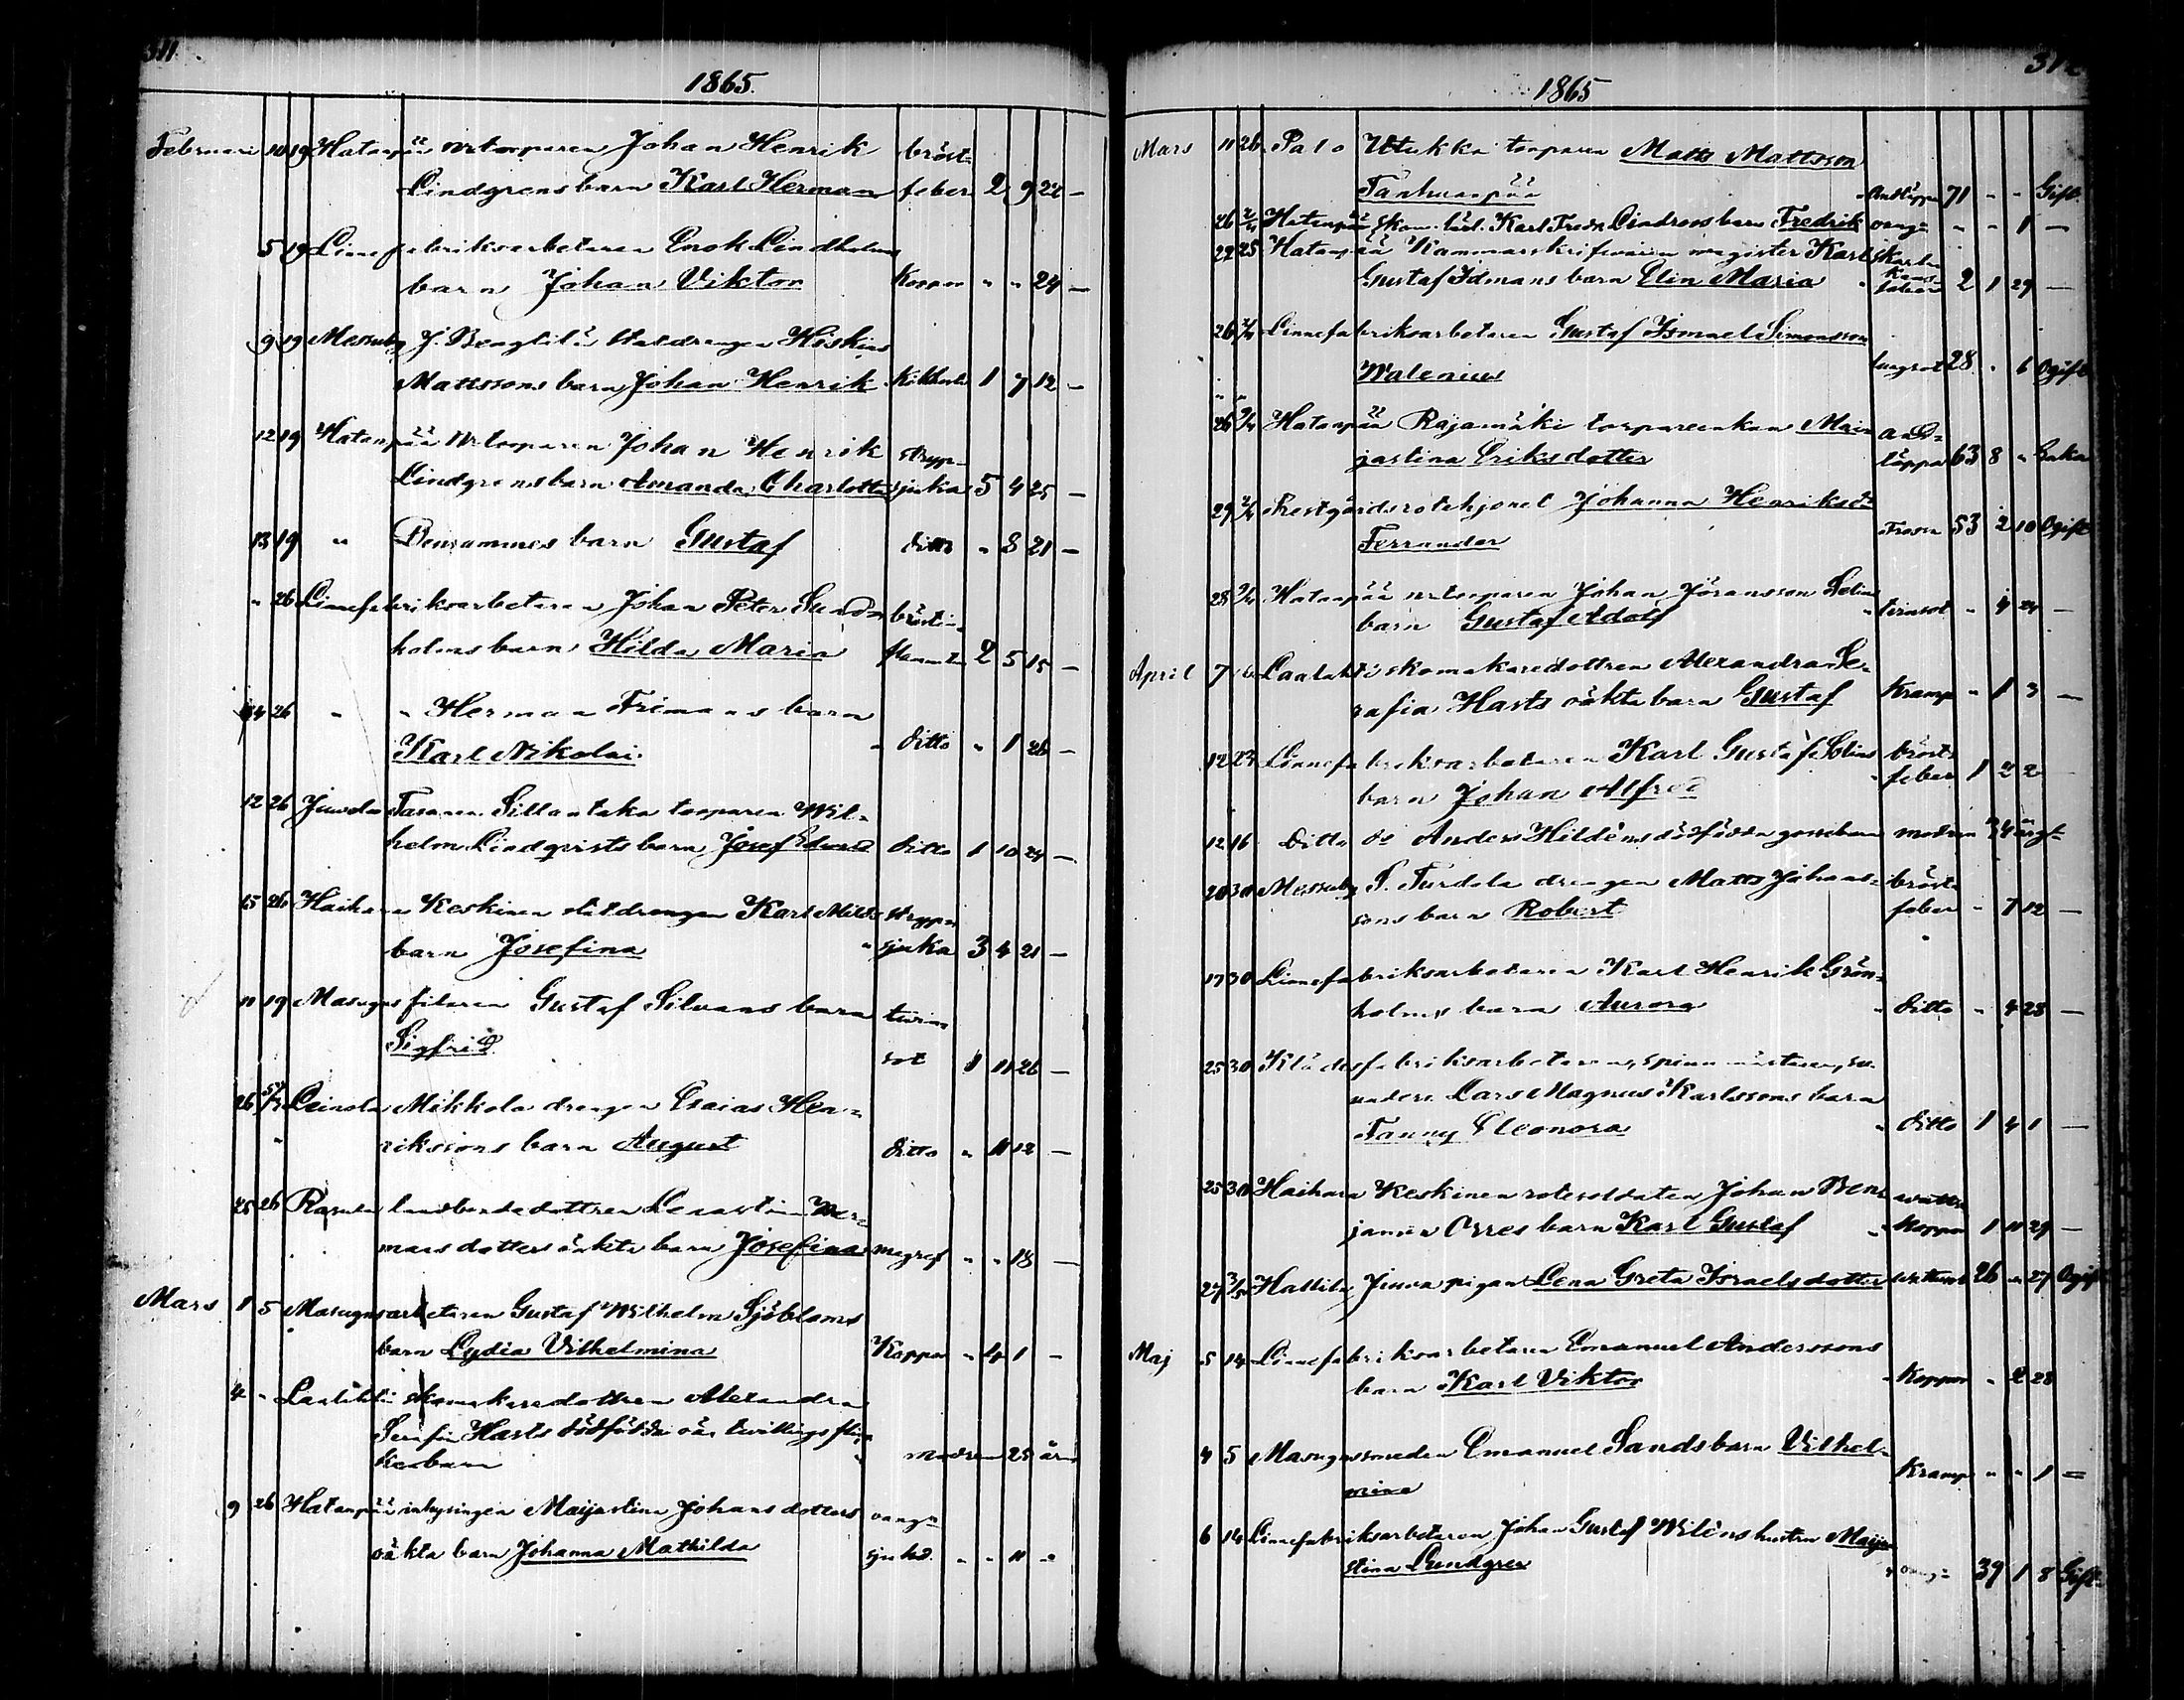 311.
1865.
Februari 10 19 Hatanpää nrtorparen Johan Henrik bröst-
Lindgrens barn Karl Herman feber 2 9 22 —
5 19 Linnefabriksarbetaren Enok Lindholms
barn Johan Viktor Koppor " " 24 —
9 19 Messuby J. Bengtilä statdrengen Hiskias
Mattssons barn Johan Henrik Kikhosta 1 7 12 —
12 19 Hatanpää nrtorparen Johan Henrik stryp-
Lindgrens barn Amanda Charlotta sjuka 5 4 25 —
13 19 " Densammes barn Gustaf ditto " 8 21 —
" 26 Linnefabriksarbetaren Johan Peter Sund- bröstin-
holms barn Hilda Maria flammat. 2 5 15 —
14 26 " " Herman Frimans barn
Karl Nikolai " ditto " 1 26 —
12 26 Juvela Tasanen Sillantaka torparen Wil-
helm Lindqvists barn Josef Edvard ditto 1 10 24 —
15 26 Haihara Keskinen statdrengen Karl Milts stryp-
barn Josefina " sjuka 3 4 21 —
11 19 Masugnsfilaren Gustaf Silvans barn tvin-
Sigfrid sot 1 11 26 —
26 5/3 Leinola Mikkola drengen Esaias Hen-
rikssons barn August ditto " 11 12 —
25 26 landbondedottren
mansdotters oäkta barn Josefina magref " " 18 —
Mars 1 5 Masugnsarbetaren Gustaf Wilhelm Sjöbloms
barn Lydia Vilhelmina Koppor " 4 1 —
4 " Laalahti skomakaredottren Alexandra
Serafia Harts dödfödda oäa tvillings flic-
kebarn " modren 25 år
9 26 Hatanpää inhysingen Maijastina Johansdotters oäng-
oäkta barn Johanna Mathilda sjukd. " " 11 "
1865
Mars 11 26 Palo Utukka torparen Matts Mattsson
Tanhuanpää " Andtäppa 71 " " Gift.
26 2/4 Hatanpää Karl Fredr Lindroos barn Fredrik oäng- " " 1 —
22 25 Hatanpää Kammarskrifvaren magister Karl skarla-
Gustaf Idmans barn Elin Maria " kans- feber 2 1 29 —
26 2/4 Linnefabriksarbetaren Gustaf Ismael Simonsson
Walenius lungsot 28 " 6 Ogift
26 9/4 Hatanpää Rajamäki torpareenkan Maia and-
jastina Eriksdotter täppa 63 8 " Enka
29 2/4 Prestgårdsrotehjonet Johanna Henriksdr
Ferrander Frossa 53 2 10 Ogift
28 2/4 Hatanpää nrtorparen Johan Jöransson Selins
barn Gustaf Adolf " tvinsot " 4 24 —
April 7 16 Laalahti skomakaredottren Alexandra Se-
rafia Harts oäkta barn Gustaf Kramp " 1 3 —
12 23 Linnefabriksarbetaren Karl Gustaf Solins bröst-
barn Johan Alfred " feber 1 2 2
12 16 Ditto do Anders Hildéns dödfödda gossebarn modren 34 årgl
20 30 Messuby S. Turdola drengen Matts Johans- bröst-
sons barn Robert feber " 7 12 —
17 30 Linnefabriksarbetaren Karl Henrik Grön-
holms barn Aurora " ditto " 4 23 —
25 30 Klädesfabriksarbetaren, spinnmästaren,
Lars Magnus Karlssons barn
Fanny Eleonora " ditto 1 4 1 —
25 30 Haihara Keskinen rotesoldaten Johan Ben- watten
jamin Orres barn Karl Gustaf " Koppor 1 11 29 —
27 3/5 Hallila Juva pigan Lena Greta Israelsdotter wattusot 26 " 27 Ogift
Maj 5 14 Linnefabriksarbetaren Emanuel Anderssons
barn Karl Viktor " Koppor " 2 28
4 5 Masugnssmeden Emanuel Sands barn Vilhel-
mina Kramp " " 1 =
6 14 Linnefabriksarbetaren Johan Gustaf Wiléns hustru Maija
stina Lundgren " oäng- 39 1 8 Gift